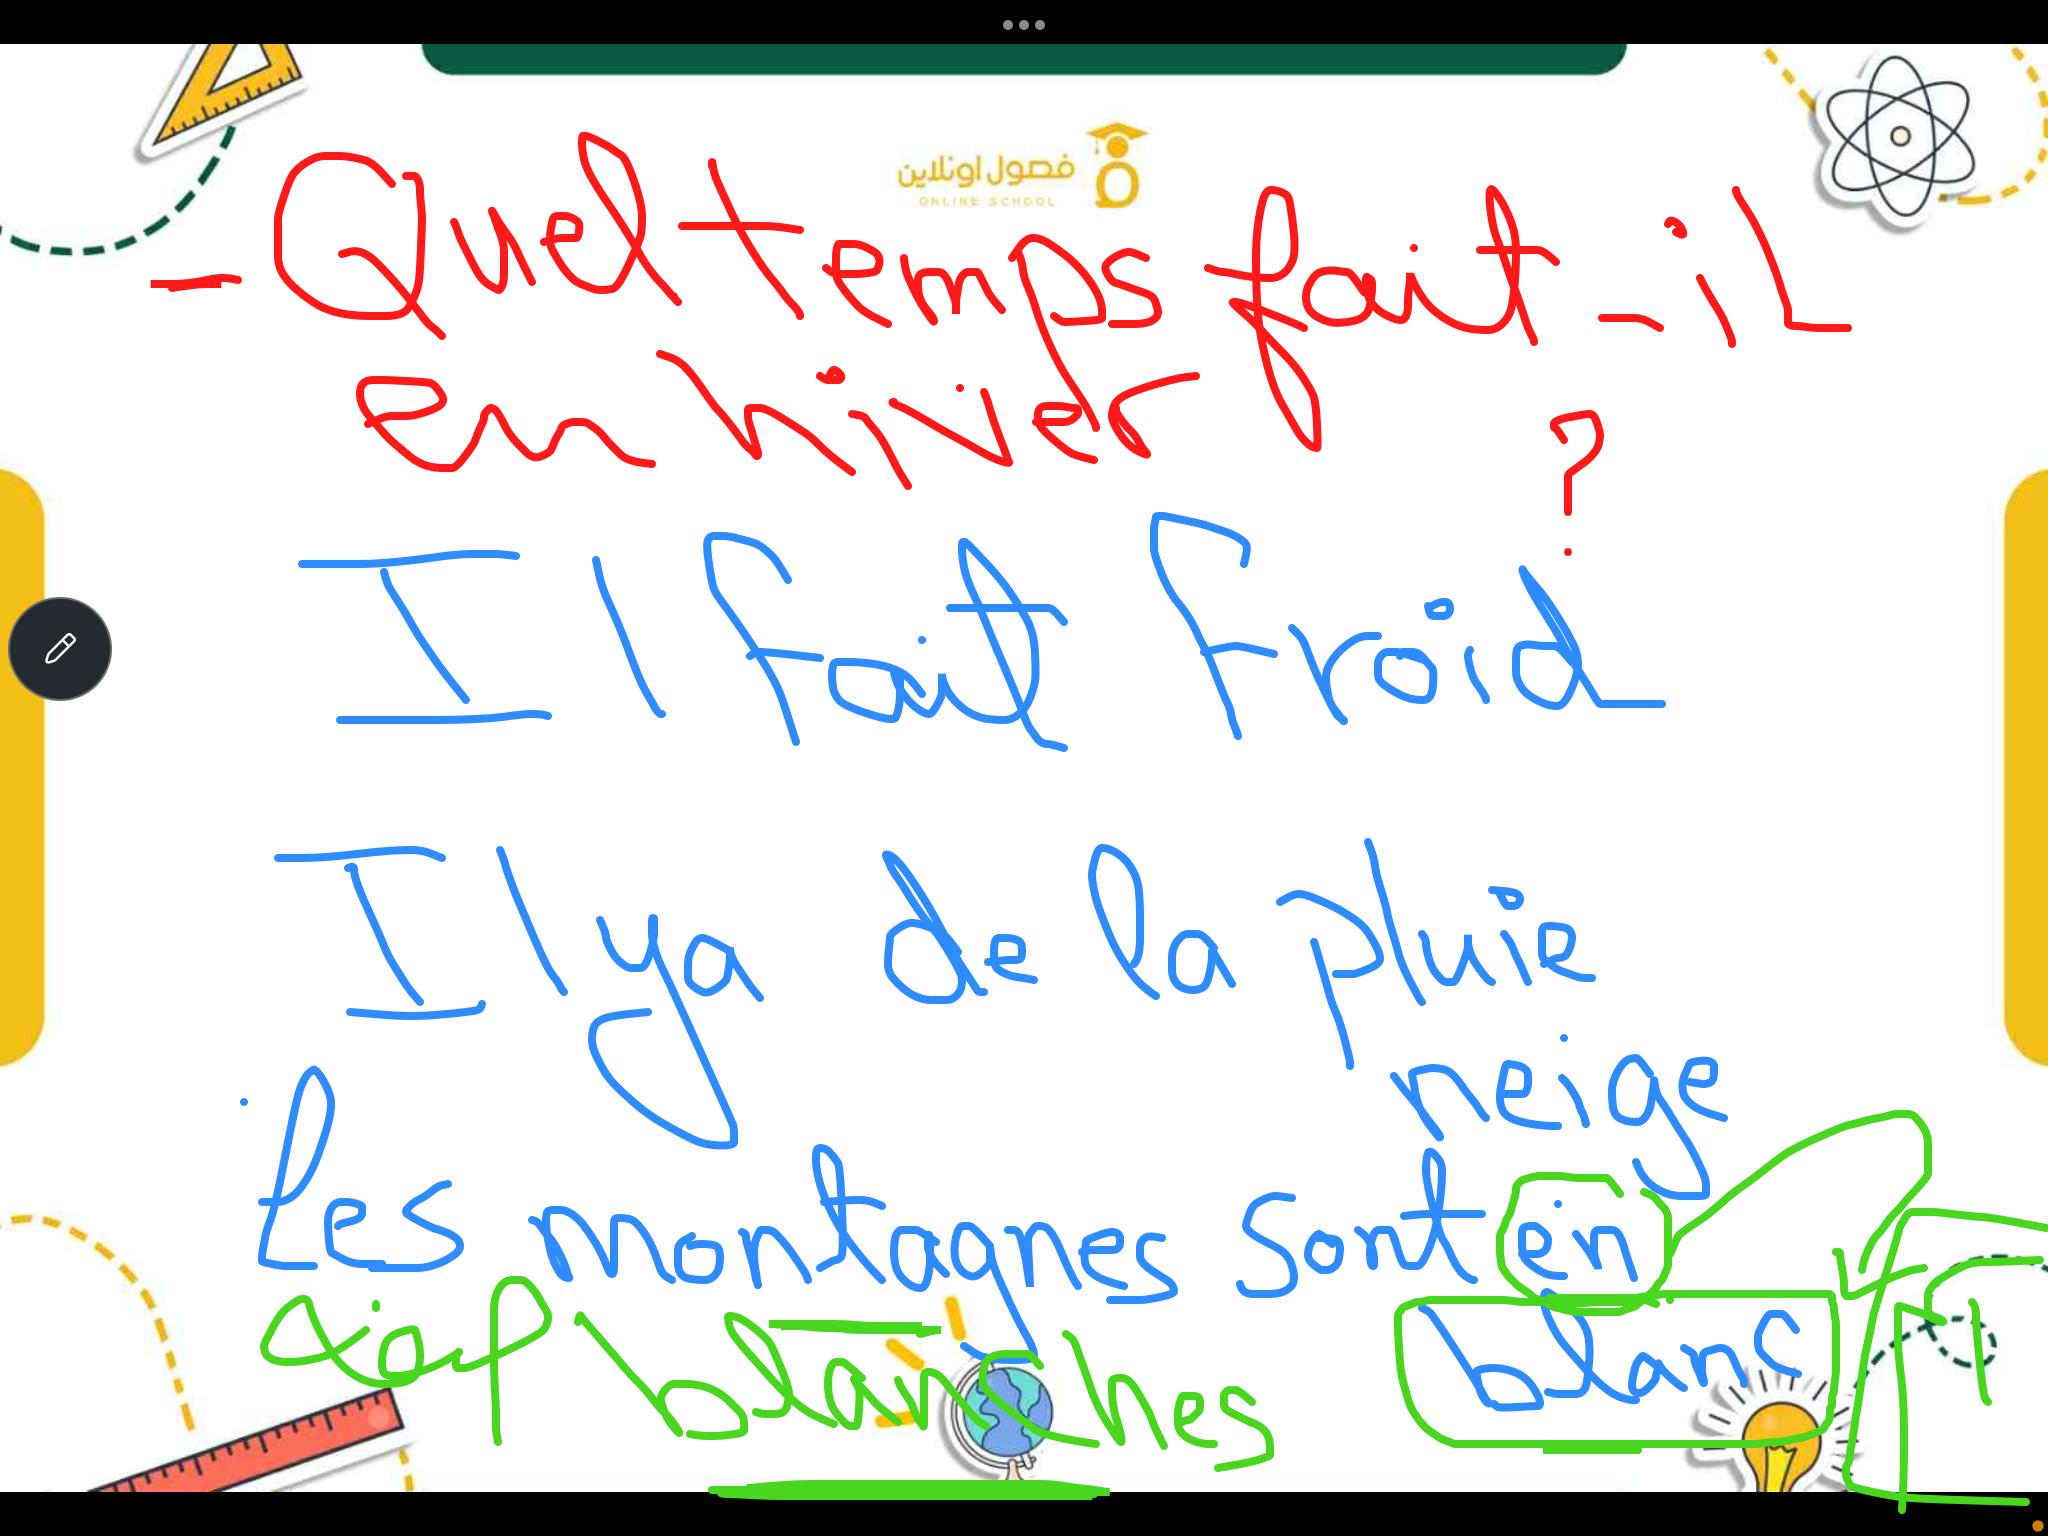 فصول اونلاين
ONLINE SCHOOL
- Quel temps fait-il
en hiver ?
Il fait froid
Il y a de la pluie
neige
Les montagnes sont en
blanc
blanches